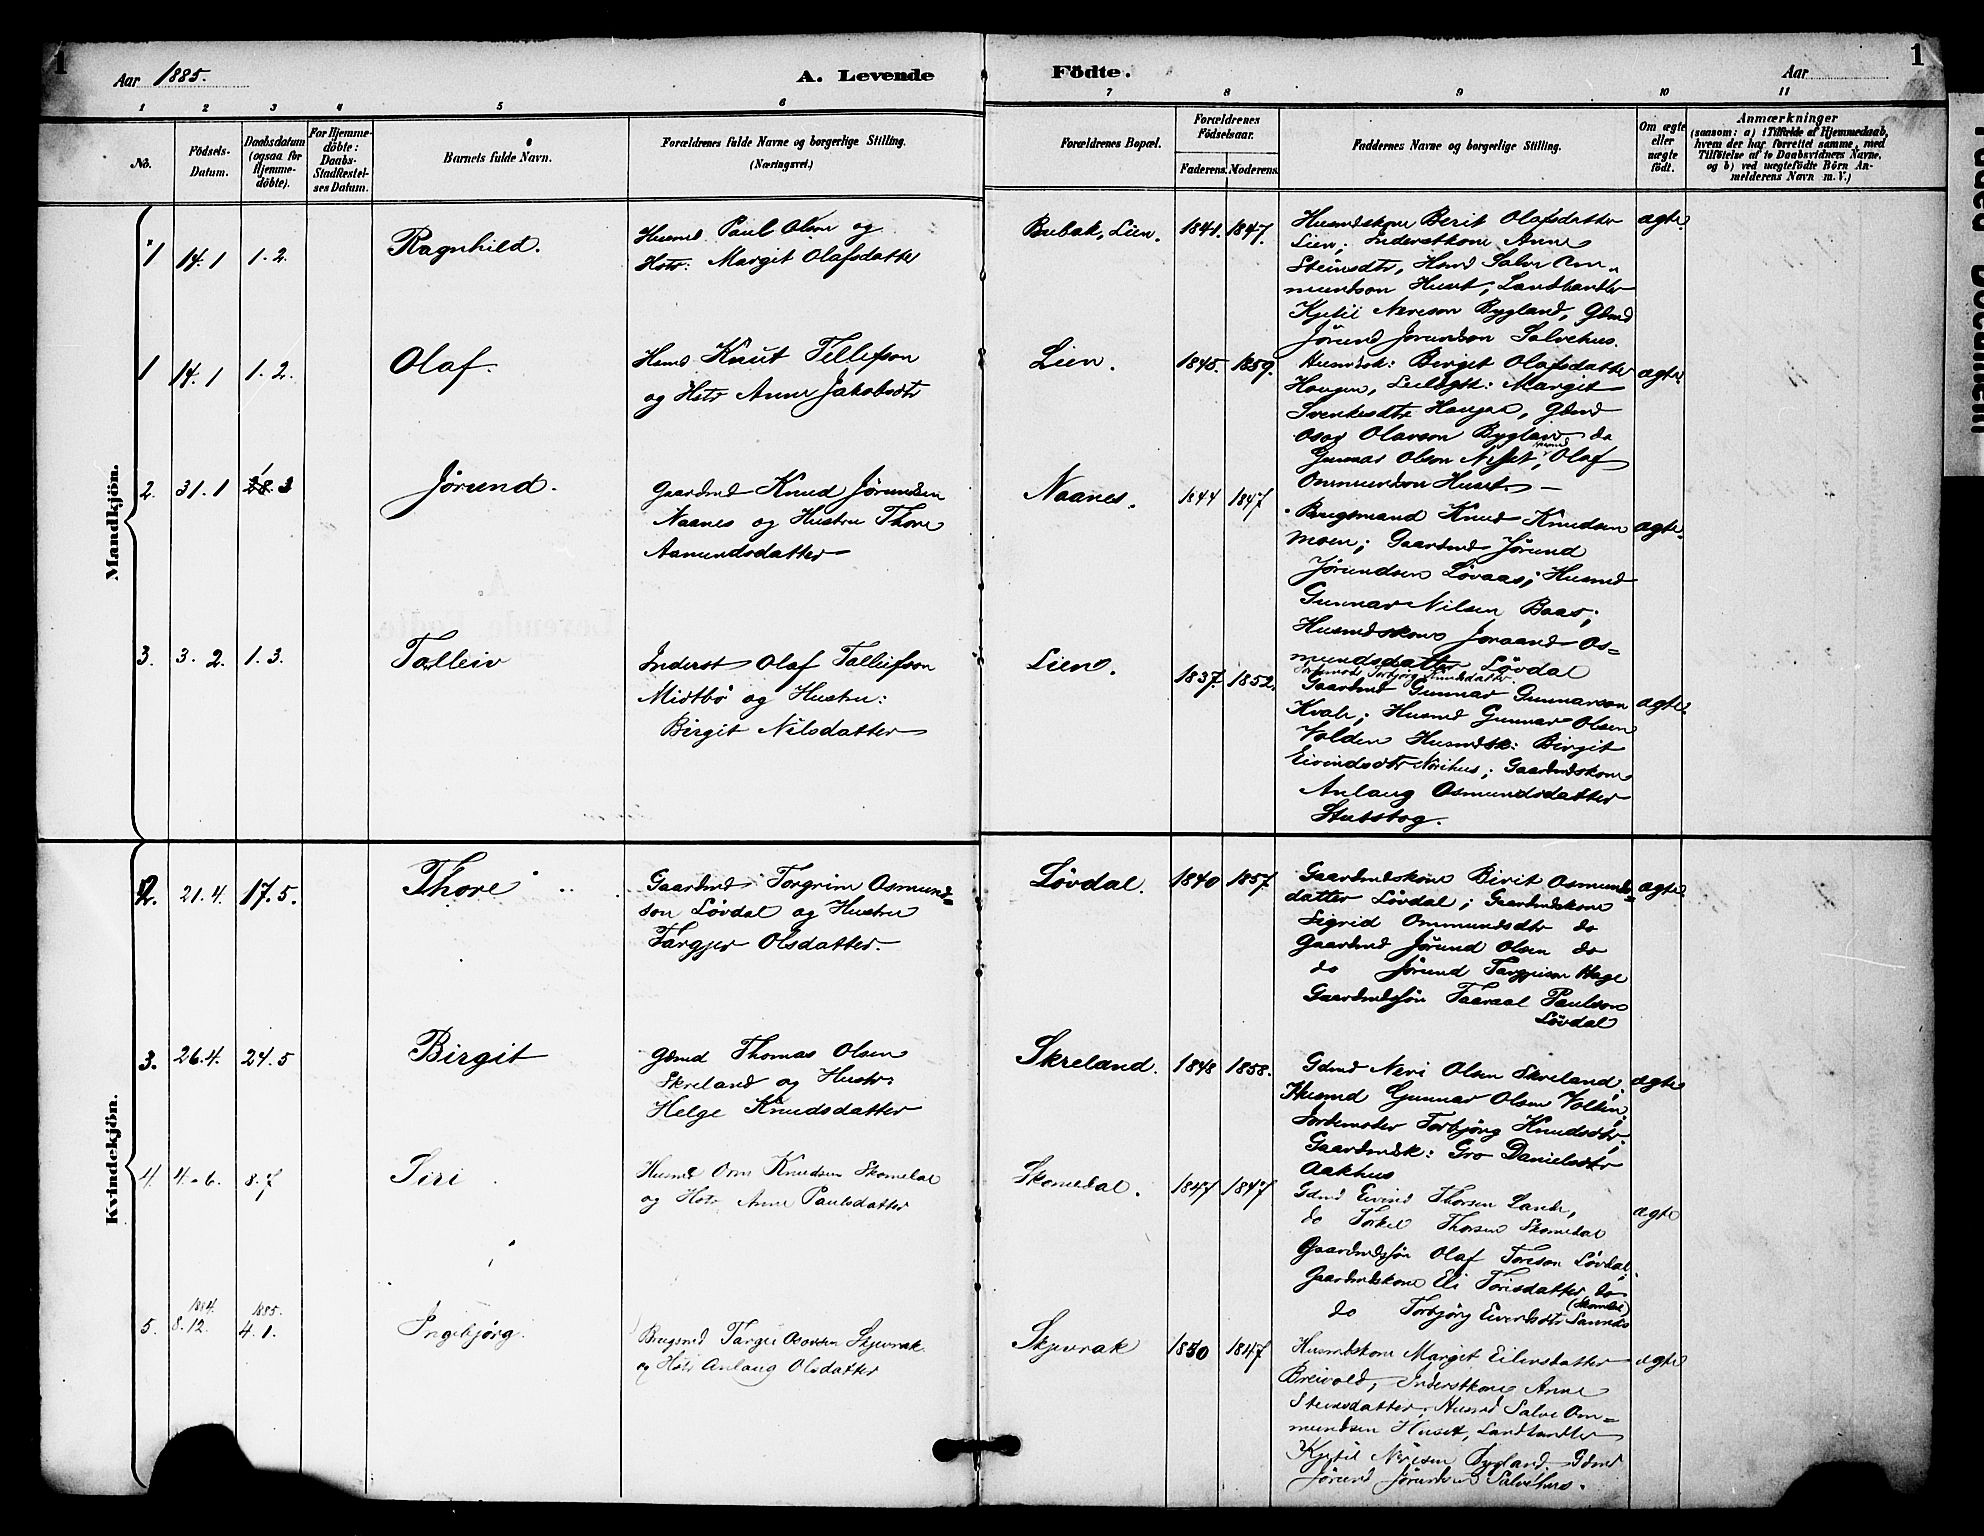 1
Aar 1885.
A. Levende
Födte.
Aar
1
1 2 3 4 5 6 7 8 9 10 11
No.
Födsels-
Datum.
Daabsdatum
(ogsaa for
Hjemme-
döbte).
For Hjemme-
döbte:
Daabs-
Stadfæstel-
ses Datum.
Barnets fulde Navn.
Forældrenes fulde Navne og borgerlige Stilling.
(Næringsvei.)
Forældrenes Bopæl.
Forældrenes
Födselsaar.
Faderens. Moderens.
Faddernes Navne og borgerlige Stilling.
Om ægte
eller
uægte
födt.
Anmærkninger
(saasom: a) i Tilfælde af Hjemmedaab,
hvem der har forrettet samme, med
Tilföielse af to Daabsvidners Navne,
og b) ved uægtefödte Börn An-
melderens Navn m. V.)
Mandkjön.
1 14.1 1.2. Ragnhild.
Husmd. Paul Olsen og
Hstr: Margit Olafsdatter
Bubak, Lien. 1841. 1847.
Husmdskone Berit Olafsdatter
Lien; Inderstkone Anne
Steinsdtr, Hsmd Salve Om-
mundson Huset, Landhandler
Kjetil Nereson Bygland, Gdmd
Jörund Jorundson Salvehus.
ægte.
1 14.1 1.2. Olaf.
Hsmd Knut Tellefson
og Hstr Anne Jakobsdtr
Lien. 1845. 1859.
Husmdsk: Birgit Olafsdatter
Haugen, Margit
Haugen, Gdmd
Olavson Bygland do
Gunnar Olson Olaf
Ommundson Huset. —
ægte.
2. 31.1 1 Jörund.
Gaardmd Knud Jörundsen
Naanes og Hustru Thore
Aamundsdatter
Naanes. 1844 1847.
Brugsmand Knud Knudsen
Moen; Gaardmd Jörund
Jörundsen Lövaas; Husmd
Gunnar Nilsen Baas;
Husmdskone Joraand Os-
mundsdatter Lövdal
Torbjörg Knudsdatter
ægte.
3. 3.2. 1.3. Talleiv
Inderst Olaf Talleifson
Midtbö og Hustru:
Birgit Nilsdatter
Lien. 1837. 1852.
Gaardmd Gunnar Gunnarson
Kvale; Husmd Gunnar Olsen
Volden Husmdsk: Birgit
Eivindsdtr Norihus; Gaardmdskone
Anlaug Osmundsdatter
Stubstog.
ægte.
Kvindekjön.
2. 21.4. 17.5. Thore
Gaardmd Torgrim Osmund-
son Lövdal og Hustru
Targjer Olsdatter.
Lövdal. 1840 1857.
Gaardmdskone Birit Osmunds-
datter Lövdal; Gaardmdskone
Sigrid Ommundsdtr do
Gaardmd Jörund Olsen do
do Jörund Targjeison Hage
Gaardmdssön Taaraal Paulson
Lövdal
ægte.
3. 26.4. 24.5 Birgit
Gdmd Thomas Olsen
Skreland og Hustr:
Helge Knudsdatter
Skreland. 1848 1858.
Gdmd Neri Olsen Skreland;
Husmd Gunnar Olsen Volden;
Jordemoder Torbjörg Knudsdtr.
Gaardmdsk: Gro Danielsdtr
Aakhus
ægte
4. 4.6. 8.7 Siri.
Husmd Orm Knudsen Skomedal
og Hstr. Anne Paulsdatter
Skomedal. 1847 1847
Gdmd Eivind Thorsen Lande,
do Torkel Thorsen Skomedal
Gaardmdssön Olaf Toreson Lövdal.
Gaardmdskone Eli Torisdatter do
(Skomedal)
do Torbjörg Eivindsdtr Sannes
ægte
5. 1884. 8.12. 1885. 4.1. Ingebjörg.
Brugsmd Targei Skjevrak
og Hstr Anlaug Olsdatter
Skjevrak 1850 1847
Husmdskone Margit Eilevsdatter
Breivold, Inderstkone Anne
Steinsdatter; Husmd Salve Om-
mundsen Huset, Landhandler
Kjetil Neresen Bygland. Gdmd
Jörund Jörundsen Salvehus.
ægte